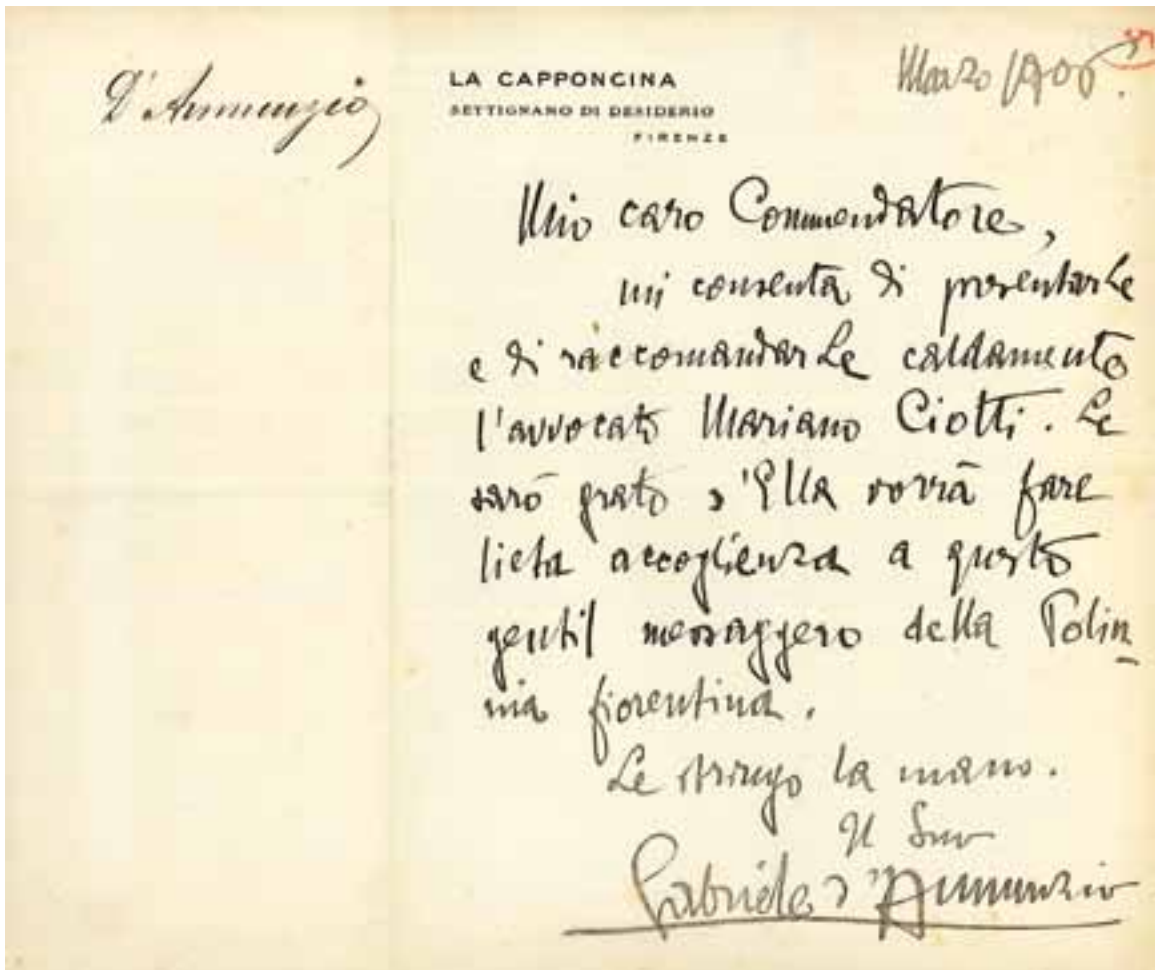 D'Annunzio
LA CAPPONCINA
SETTIGNANO DI DESIDERIO
FIRENZE
Marzo 1906.
Mio caro Commendatore,
mi consenta di presentarLe
e di raccomandarLe caldamente
l'avvocato Mariano Ciotti. Le
sarò grato s'Ella vorrà fare
lieta accoglienza a questo
gentil messaggero della Polin-
nia fiorentina.
Le stringo la mano.
Il Suo
Gabriele d'Annunzio